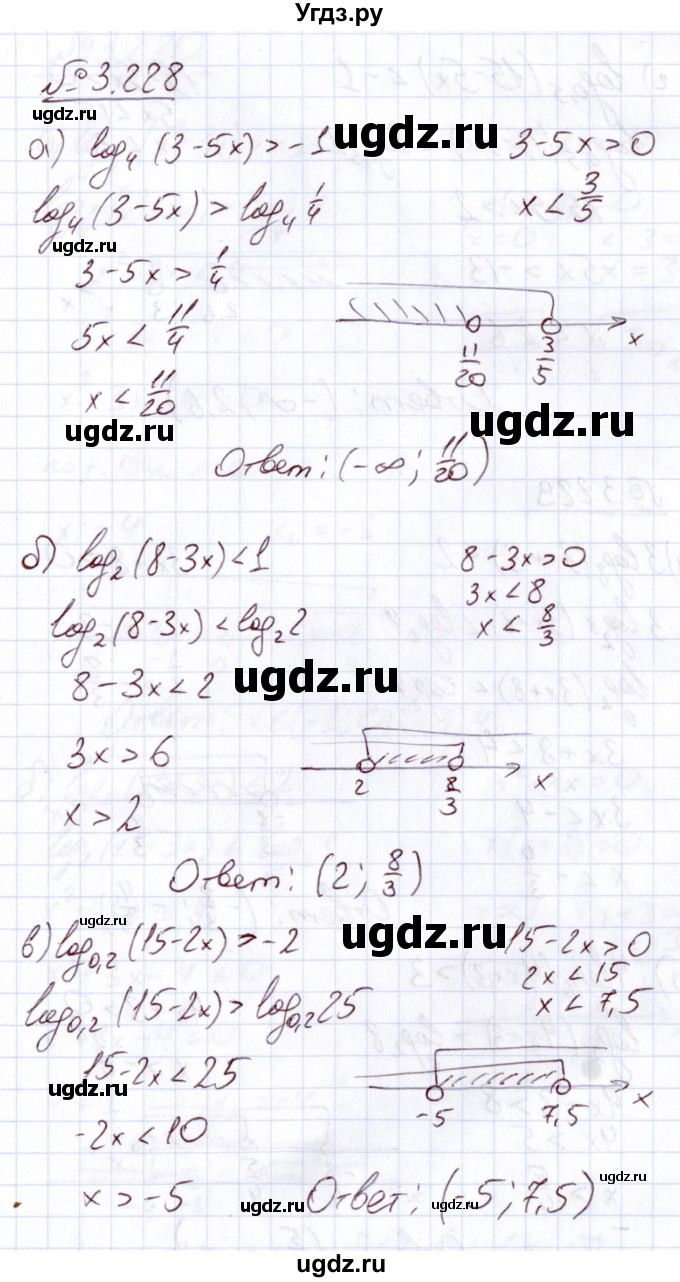 Угдз.ру
№3.228
ugdz.ru
ugdz.ru
а) log₄(3-5x) > -1   3-5x > 0
log₄(3-5x) > log₄ 1/4   x < 3/5
ugdz.ru
3-5x > 1/4
5x < 11/4
11/20   3/5   x
x < 11/20
ugdz.ru
Ответ: (-∞; 11/20)
б) log₂(8-3x) < 1   8-3x > 0
3x < 8
log₂(8-3x) < log₂2   x < 8/3
ugdz.ru
8-3x < 2   ugdz.ru
3x > 6
2   8/3   x
x > 2
Ответ: (2; 8/3)
ugdz.ru
ugdz.ru
в) log₀,₂(15-2x) > -2   15-2x > 0
2x < 15
log₀,₂(15-2x) > log₀,₂25   x < 7,5
15-2x < 25
ugdz.ru
-5   7,5   x
-2x < 10
ugdz.ru
x > -5   ugdz.ru   Ответ: (-5; 7,5)
ugdz.ru